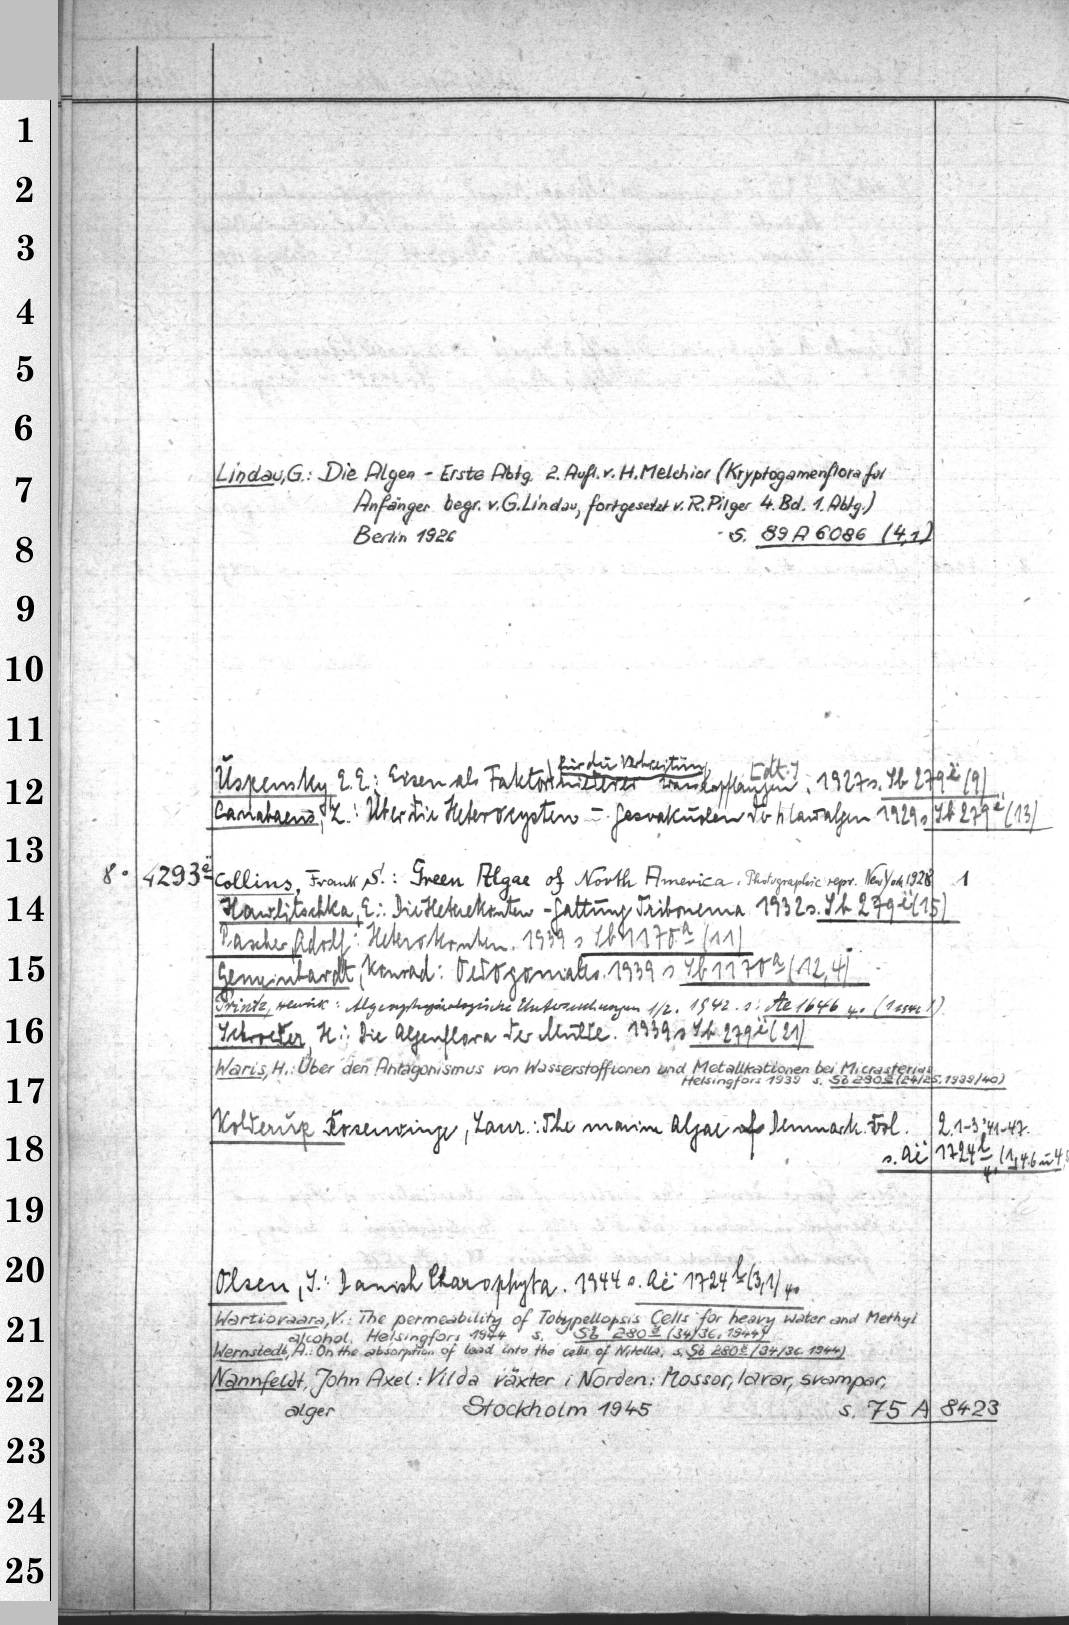 1
2
3
4
5
6
7
8
9
10
11
12
13
14
15
16
17
18
19
20
21
22
23
24
25
Lindau, G.: Die Algen - Erste Abtg. 2. Aufl. v. H. Melchior (Kryptogamenflora für
Anfänger begr. v. G. Lindau, fortgesetzt v. R. Pilger 4. Bd. 1. Abtg.)
Berlin 1926 s. 89 A 6086 (4,1)
für die Verbreitung
Uspensky E. E.: Eisen als Faktor niederer Wasserpflanzen. [dt.] 1927 s. Sb 279 ë (9)
Canabaeus, L.: Über die Heterocysten u. Gasvakuolen der Blaualgen 1929 s. Sb 279 ë (13)
8° 4293 ë Collins, Frank S.: Green Algae of North America. Photographic repr. New York 1928 1
Hawlitschka, E.: Die Heterokonten-Gattung Tribonema 1932 s. Sb 279 ë (15)
Pascher, Adolf: Heterokonten. 1939 s Sb 1170 a (11)
Gemeinhardt, Konrad: Oedogoniales. 1939 s Sb 1170 a (12,4)
Printz, Henrik: Algenphysiologische Untersuchungen 1/2. 1942. s: Ae 1646 4° (1942 1)
Schroeter, H.: Die Algenflora der Mulde. 1939 s Sb 279 ë (21)
Waris, H.: Über den Antagonismus von Wasserstoffionen und Metallkationen bei Micrasterias
Helsingfors 1939 s. Sb 280 (24/25. 1939/40)
Kolderup Rosenvinge, Laur.: The marine algae of Denmark. Vol. 2,1-3: 41-47.
s. Aë 1724 b 4° (1, 4.6 u 4,
Olsen, S.: Danish Charophyta. 1944 s. Aë 1724 b (3,1) 4°
Wartiovaara, V.: The permeability of Tolypellopsis Cells for heavy water and Methyl
alcohol. Helsingfors 1944 s. Sb 280 (34/36. 1944)
Wernstedt, A.: On the absorption of lead into the cells of Nitella, s. Sb 280 (34/36 1944)
Nannfeldt, John Axel: Vilda växter i Norden: Mossor, lavar, svampar,
alger Stockholm 1945 s. 75 A 8423